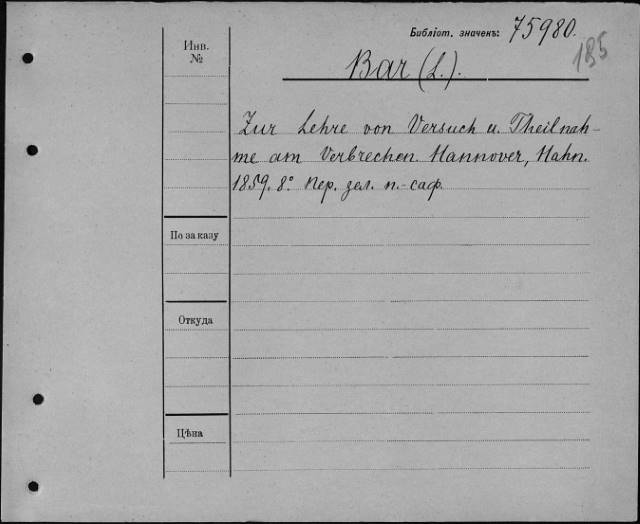 Библіот. значекъ: 75980.
185
Инв.
№
Bar (L.).
Zur Lehre von Versuch u. Theilnah-
me am Verbrechen. Hannover, Hahn.
1859. 8º Пер. зел. п.-саф.
По заказу
Откуда
Цѣна